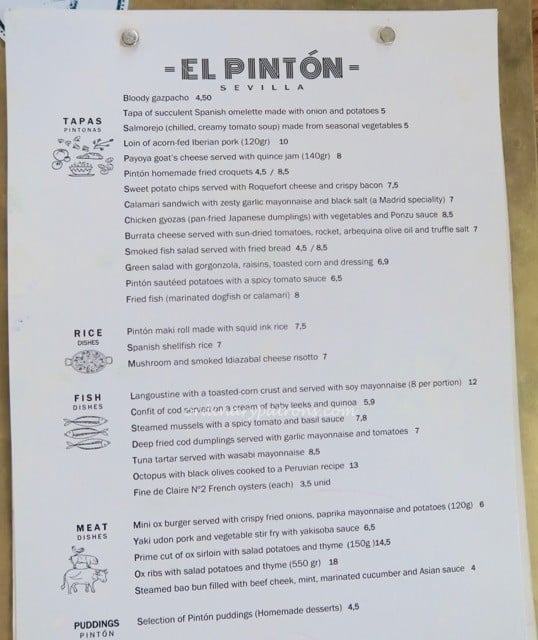 EL PINTÓN
SEVILLA
TAPAS
PINTONAS
Bloody gazpacho 4,50
Tapa of succulent Spanish omelette made with onion and potatoes 5
Salmorejo (chilled, creamy tomato soup) made from seasonal vegetables 5
Loin of acorn-fed Iberian pork (120gr) 10
Payoya goat's cheese served with quince jam (140gr) 8
Pintón homemade fried croquets 4,5 / 8,5
Sweet potato chips served with Roquefort cheese and crispy bacon 7,5
Calamari sandwich with zesty garlic mayonnaise and black salt (a Madrid speciality) 7
Chicken gyozas (pan-fried Japanese dumplings) with vegetables and Ponzu sauce 8,5
Burrata cheese served with sun-dried tomatoes, rocket, arbequina olive oil and truffle salt 7
Smoked fish salad served with fried bread 4,5 / 8,5
Green salad with gorgonzola, raisins, toasted corn and dressing 6,9
Pintón sautéed potatoes with a spicy tomato sauce 6,5
Fried fish (marinated dogfish or calamari) 8
RICE
DISHES
Pintón maki roll made with squid ink rice 7,5
Spanish shellfish rice 7
Mushroom and smoked Idiazabal cheese risotto 7
FISH
DISHES
Langoustine with a toasted-corn crust and served with soy mayonnaise (8 per portion) 12
Confit of cod served on a cream of baby leeks and quinoa 5,9
Steamed mussels with a spicy tomato and basil sauce 7,8
Deep fried cod dumplings served with garlic mayonnaise and tomatoes 7
Tuna tartar served with wasabi mayonnaise 8,5
Octopus with black olives cooked to a Peruvian recipe 13
Fine de Claire Nº2 French oysters (each) 3,5 unid
MEAT
DISHES
Mini ox burger served with crispy fried onions, paprika mayonnaise and potatoes (120g) 6
Yaki udon pork and vegetable stir fry with yakisoba sauce 6,5
Prime cut of ox sirloin with salad potatoes and thyme (150g )14,5
Ox ribs with salad potatoes and thyme (550 gr) 18
Steamed bao bun filled with beef cheek, mint, marinated cucumber and Asian sauce 4
PUDDINGS
PINTÓN
Selection of Pintón puddings (Homemade desserts) 4,5